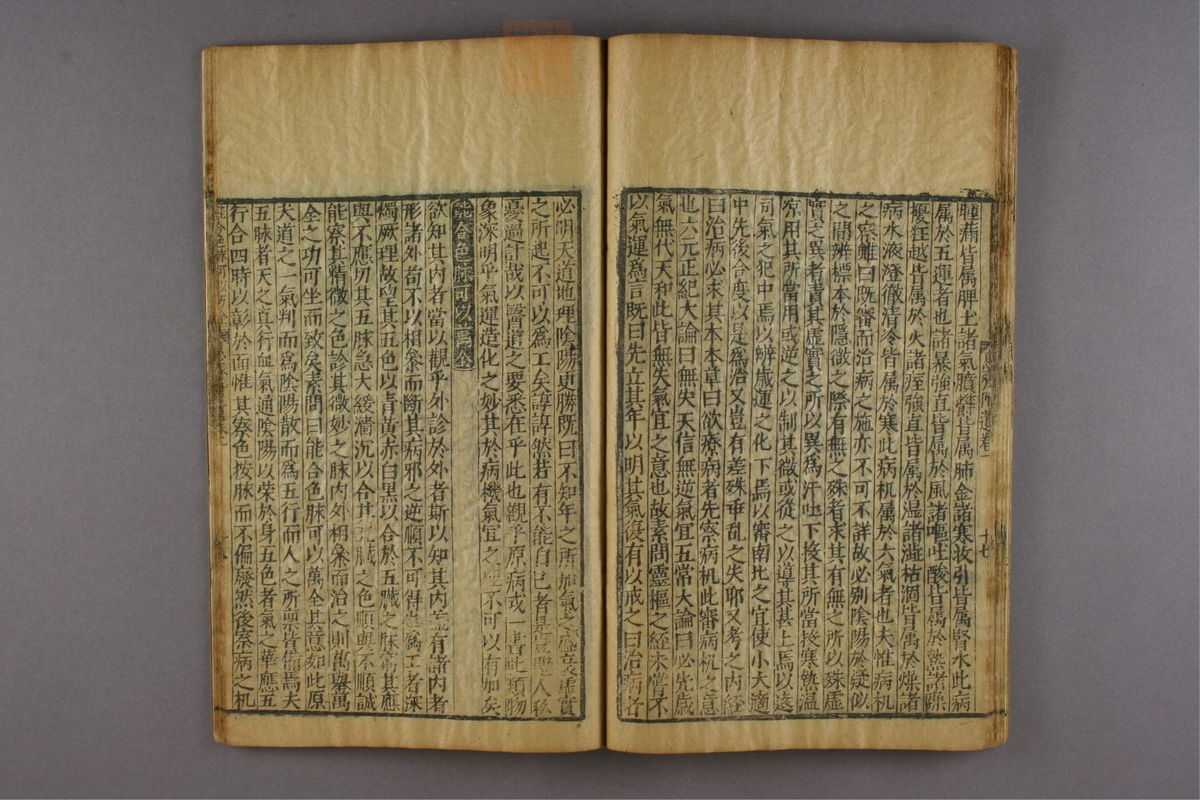 腫滿皆属脾土諸氣膹鬱皆属肺金諸寒收引皆属腎水此病
属於五運者也諸暴強直皆属於風諸嘔吐酸皆属於熱諸躁
擾狂越皆属於火諸痓強直皆属於湿諸澁枯涸皆属於燥諸
病水液澄徹清冷皆属於寒此病机属於六氣者也夫惟病机
之察雖曰既審而治病之施亦不可不詳故必别陰陽於疑似
之間辨標本於隱微之際有無之殊者求其有無之所以殊虛
實之異者責其虛實之所以異為汗吐下投其所當投寒熱温
凉用其所當用或逆之以制其微或從之以導其甚上焉以遠
司氣之犯中焉以辨歲運之化下焉以審南北之宜使小大適
中先後合度以是為治又豈有差殊乖乱之失耶又考之内經
曰治病必求其本本草曰欲療病者先察病机此審病机之意
也六元正紀大論曰無失天信無逆氣宜五常大論曰必先歲
氣無代天和此皆無失氣宜之意也故素問靈樞之經未嘗不
以氣運爲言既曰先立其年以明其氣復有以戒之曰治病者
必明天道地理陰陽更勝既曰不知年之所加氣之盛衰虛實
之所起不可以為工矣諄諄然若有不能自已者是豈聖人私
憂過計哉以醫道之要悉在乎此也觀乎原病式一書比類物
象深明乎氣運造化之妙其於病機氣宜之理不可以有加矣
能合色脉可以萬全
欲知其内者當以觀乎外診於外者斯以知其内盖有諸内者
形諸外苟不以相叅而断其病邪之逆順不可得也為工者深
燭厥理故望其五色以青黄赤白黑以合於五臟之脉窮其應
與不應切其五脉急大緩濇沉以合其五臟之色順與不順誠
能察其精微之色診其微妙之脉内外相叅而治之則萬舉萬
全之功可坐而致矣素問曰能合色脉可以萬全其意如此原
大道之一氣判而爲陰陽散而爲五行而人之所禀皆備焉夫
五脉者天之真行血氣通陰陽以荣於身五色者氣之華應五
行合四時以彰於面惟其察色按脉而不偏廢然後察病之机